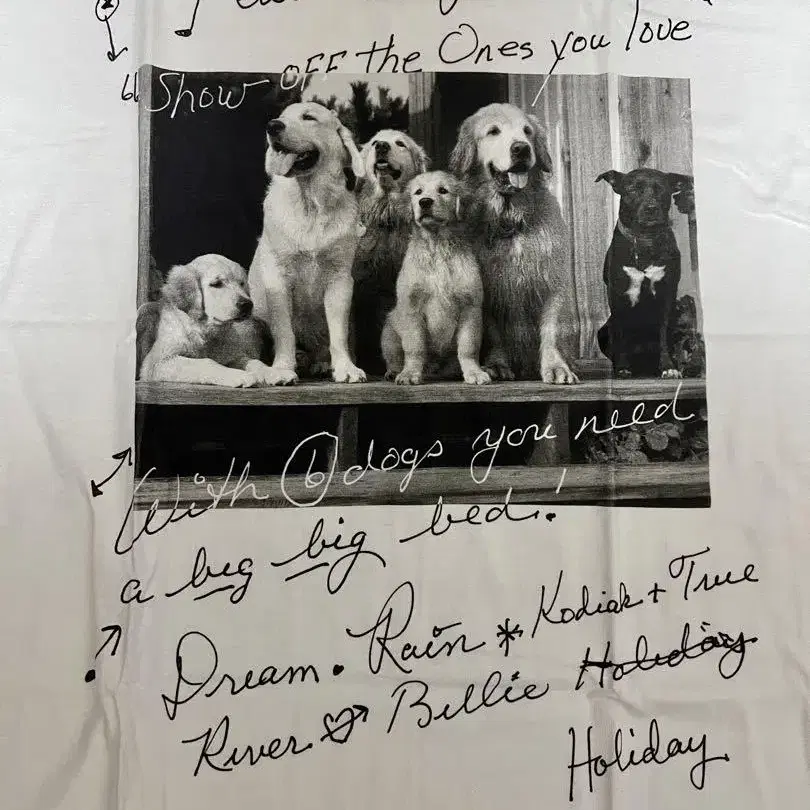 Show OFF the Ones you love
With 6 dogs you need
a big big bed!
Dream. Rain * Kodiak + True
River Billie Holiday
Holiday